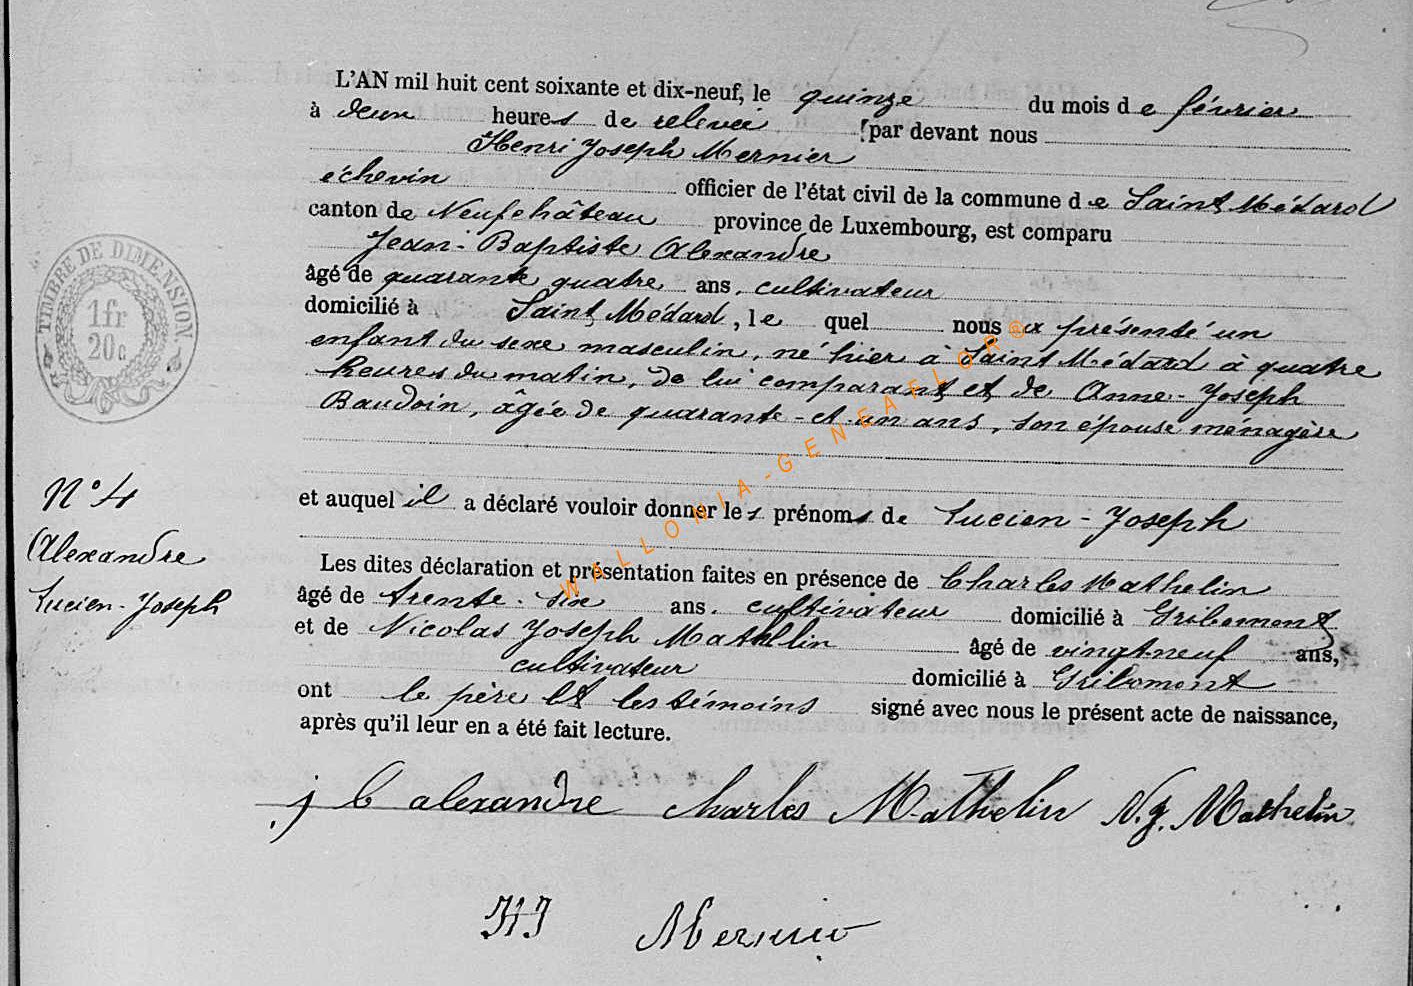 L'AN mil huit cent soixante et dix-neuf, le quinze du mois de février
à deux heures de relevée par devant nous
Henri Joseph Mernier
échevin officier de l'état civil de la commune de Saint Médard
canton de Neufchâteau province de Luxembourg, est comparu
Jean-Baptiste Alexandre
âgé de quarante quatre ans, cultivateur
domicilié à Saint Médard, le quel nous a présenté un
enfant du sexe masculin, né hier à Saint Médard à quatre
heures du matin, de lui comparant et de Anne-Joseph
Baudoin, âgée de quarante-et-un ans, son épouse ménagère
et auquel il a déclaré vouloir donner les prénoms de Lucien-Joseph
Les dites déclaration et présentation faites en présence de Charles Mathelin
âgé de trente-six ans, cultivateur domicilié à Gribomont
et de Nicolas Joseph Mathelin âgé de vingt-neuf ans,
cultivateur domicilié à Gribomont
ont le père et les témoins signé avec nous le présent acte de naissance,
après qu'il leur en a été fait lecture.
j b alexandre charles Mathelin N.j. Mathelin
HJ Mernier
TIMBRE DE DIMENSION
1fr
20c
N° 4
Alexandre
Lucien-Joseph
WALLONIA-GENEAFLOR@